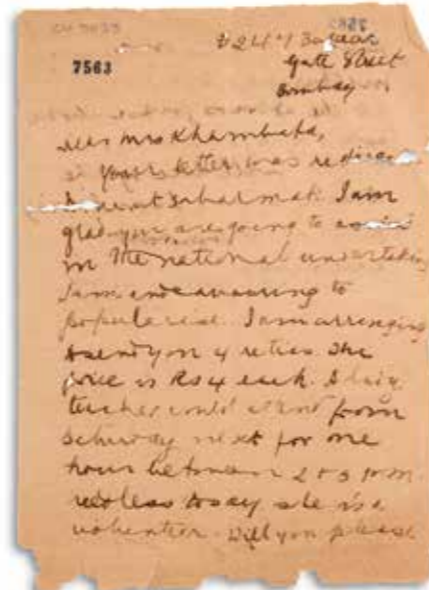 7563
Gate Street
Bombay
Dear Mrs Khambata,
Your letter was
at Sabarmati. I am
glad you are going to assist
in the national undertaking
I am endeavouring to
popularise. I am arranging
to send you 4 The
price is Rs 4 each. A lady
teacher could attend from
next for one
hour between 2 & 3 p.m.
Needless to say she is a
volunteer. Will you please